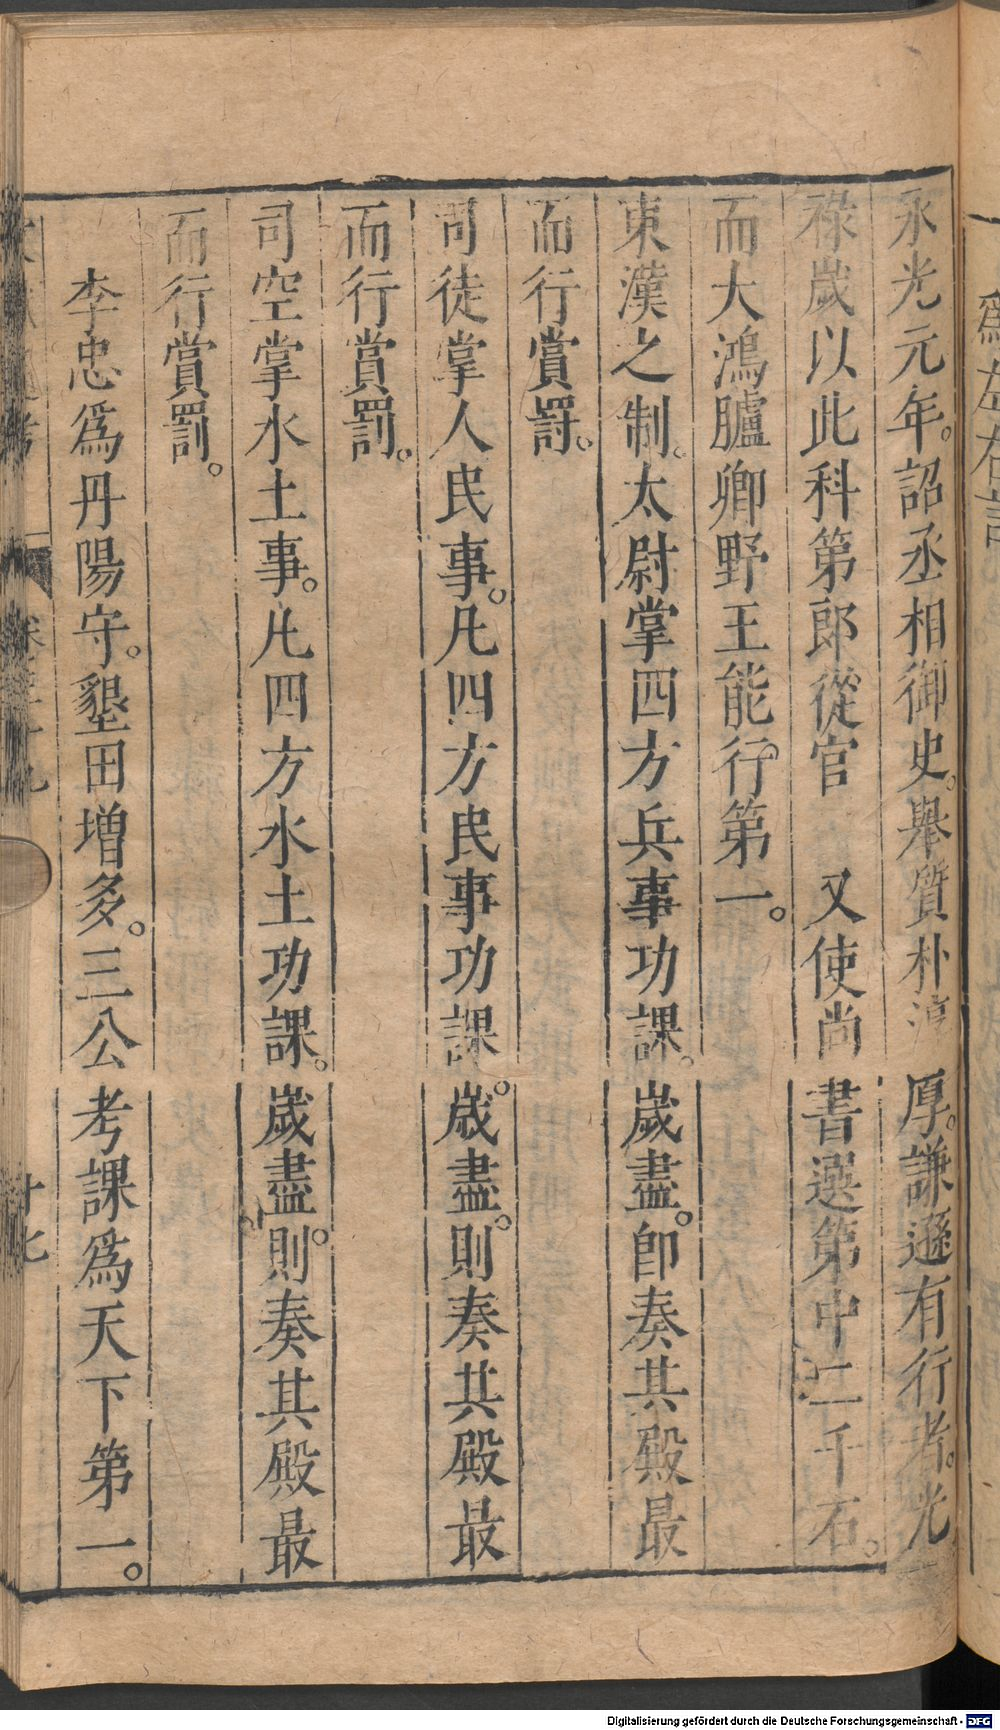 永光元年。詔丞相御史。舉質朴淳厚。謙遜有行者。光
祿歲以此科第郎從官 又使尚書選第中二千石。
而大鴻臚卿野王能行第一。
東漢之制。太尉掌四方兵事功課。歲盡。卽奏其殿最
而行賞罰。
司徒掌人民事。凡四方民事功課。歲盡。則奏其殿最
而行賞罰。
司空掌水土事。凡四方水土功課。歲盡。則奏其殿最
而行賞罰。
李忠爲丹陽守。墾田增多。三公考課爲天下第一。
Digitalisierung gefördert durch die Deutsche Forschungsgemeinschaft - DFG